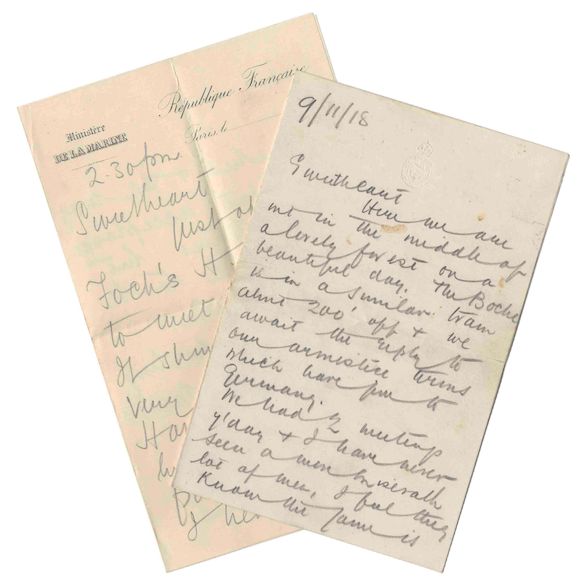 République Française
Ministère
DE LA MARINE
Paris le
2.30pm
Sweetheart
Just
Foch's H
to meet
It shou
very
Ha
I he
9/11/18
Sweetheart
Here we are
out in the middle of
a lovely forest on a
beautiful day. The Boche
is in a similar train
about 200' off & we
await the reply to
our armistice terms
which have gone to
Germany.
We had 2 meetings
y'day & I have never
seen a more miserable
lot of men, I feel they
know the game is